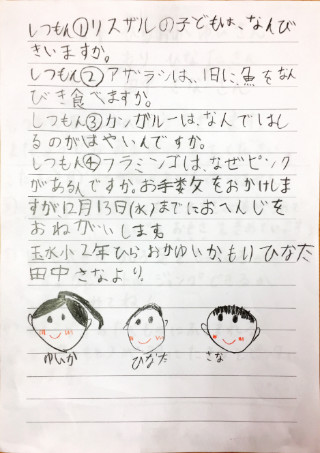 しつもん①リスザルの子どもは、なんび
きいますか。
しつもん②アザラシは、1日に、魚をなん
びき食べますか。
しつもん③カンガルーは、なんではし
るのがはやいんですか。
しつもん④フラミンゴは、なぜピンク
があるんですか。お手数をおかけしま
すが、12月13日(水)までにおへんじを
おねがいします。
玉水小2年ひらおかゆいか、もりひなた
田中さなより。
ゆいか ひなた さな